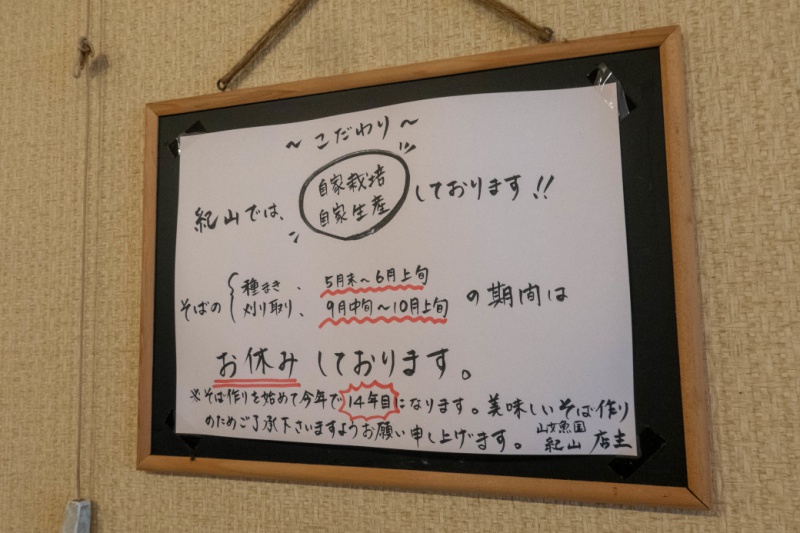 ～こだわり～
紀山では、自家栽培 自家生産 しております!!
そばの { 種まき、 5月末～6月上旬
刈り取り、 9月中旬～10月上旬 の期間は
お休みしております。
※そば作りを始めて今年で14年目になります。美味しいそば作り
のためご了承下さいますようお願い申し上げます。 山女魚園
紀山 店主